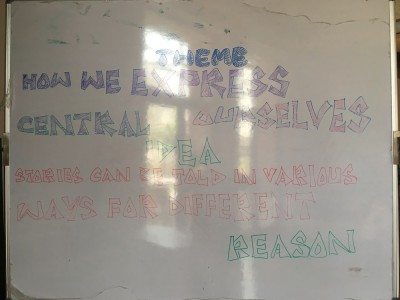 THEME
HOW WE EXPRESS
CENTRAL OURSELVES
IDEA
STORIES CAN BE TOLD IN VARIOUS
WAYS FOR DIFFERENT
REASON